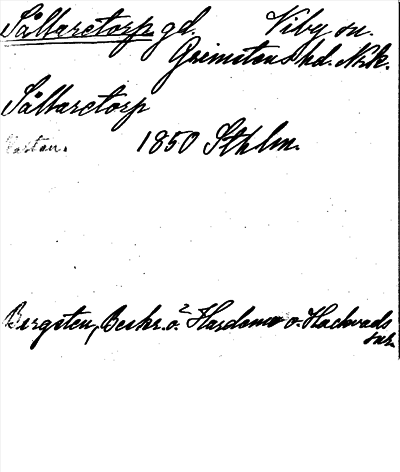 Sållaretorp gd. Viby sn.
Grimstens hd. Nrk.
Sållaretorp
1850 Sthlm.
Bergsten, Beskr. ö. Hardemo o. Hackvads
snr.